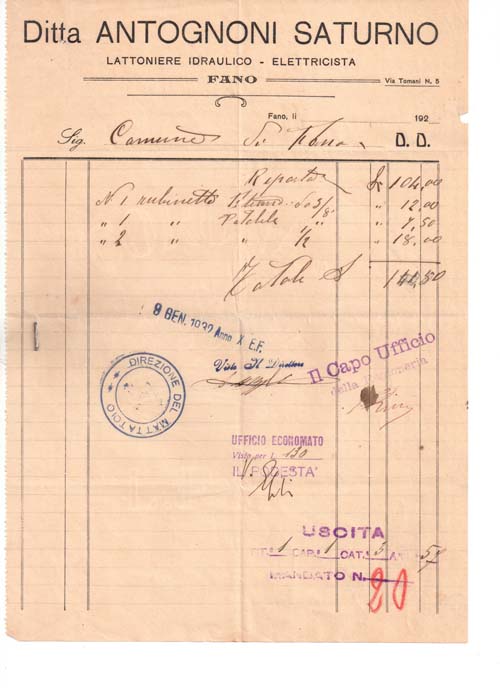 Ditta ANTOGNONI SATURNO
LATTONIERE IDRAULICO - ELETTRICISTA
FANO
Via Tomani N. 5
Fano, li 192
Sig. Comune di Fano D. D.
Riporto £ 104,00
N. 1 rubinetto da 5/8 " 12,00
" 1 " Patabile " " " 7,50
" 2 " " 1/2 " 18,00
Totale £
8 GEN. 1932 Anno X E.F.
Visto Il Direttore
Il Capo Ufficio
della Ragioneria
DIREZIONE DEL MATTATOIO
UFFICIO ECONOMATO
Visto per L. 130
IL PODESTA'
USCITA
1 CAP. 1 CAT. 3 57
MANDATO N.
20